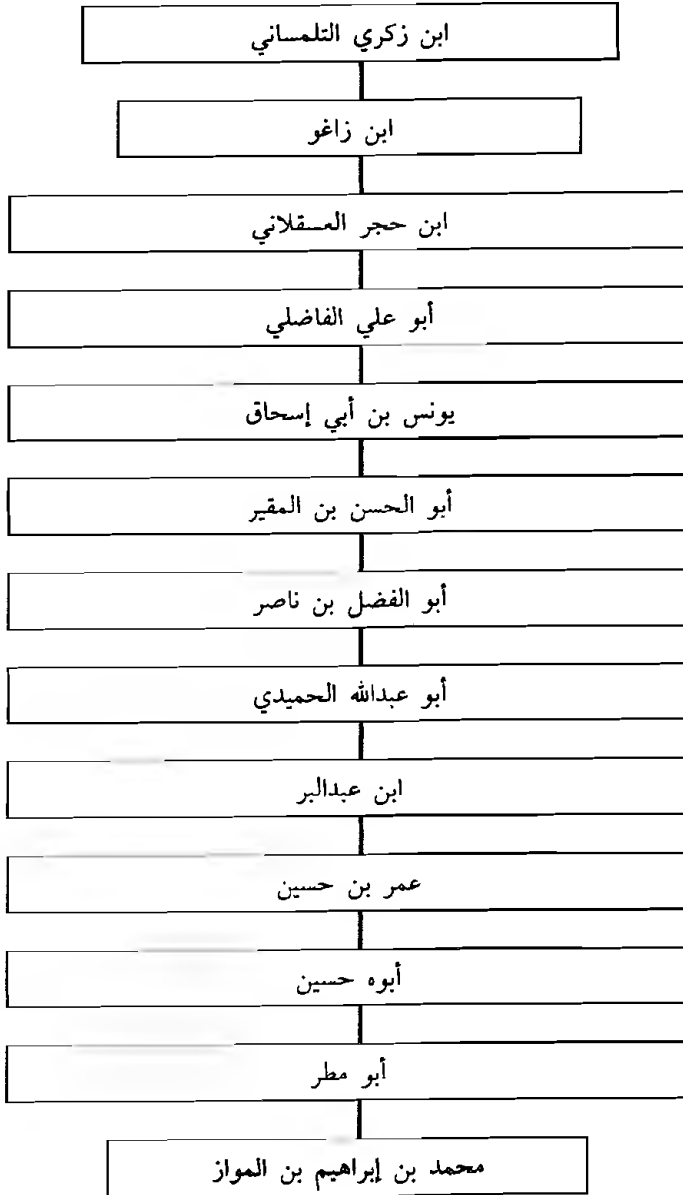 ابن زكري التلمساني
ابن زاغو
ابن حجر العسقلاني
أبو علي الفاضلي
يونس بن أبي إسحاق
أبو الحسن بن المقير
أبو الفضل بن ناصر
أبو عبدالله الحميدي
ابن عبدالبر
عمر بن حسين
أبوه حسين
أبو مطر
محمد بن إبراهيم بن المواز